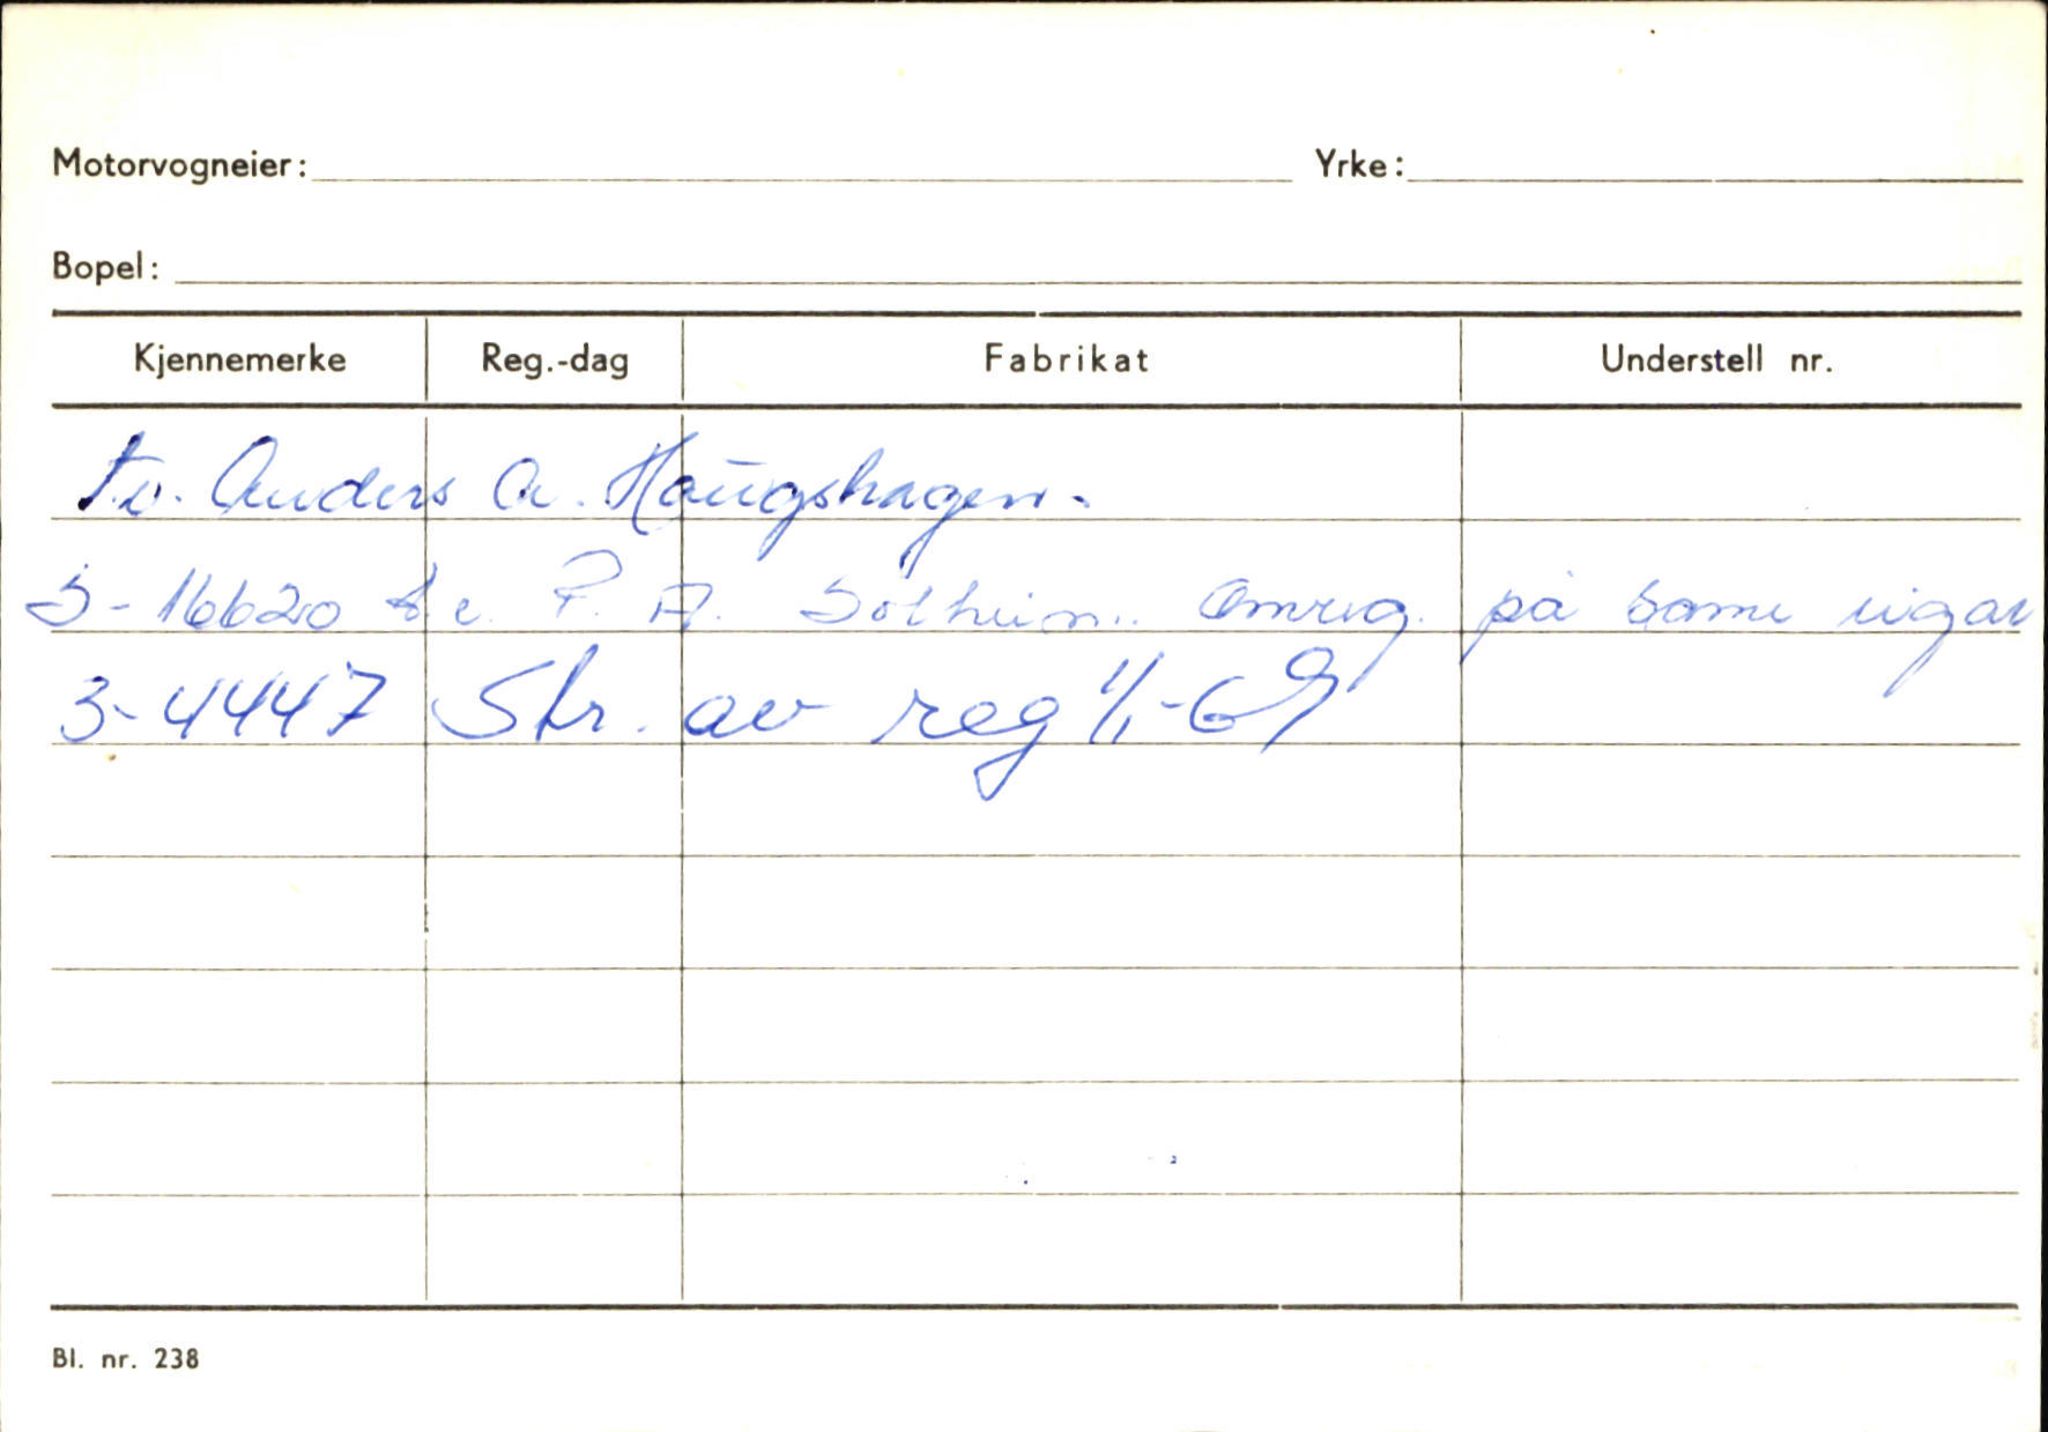 Motorvogneier: Yrke:
Bopel:
Kjennemerke Reg.-dag Fabrikat Understell nr.
Anders A. Haugshagen.
S-16620 P. A. Solheim. Omreg. på same eigar
S-4447 Str. av reg 1/1-69
Bl. nr. 238